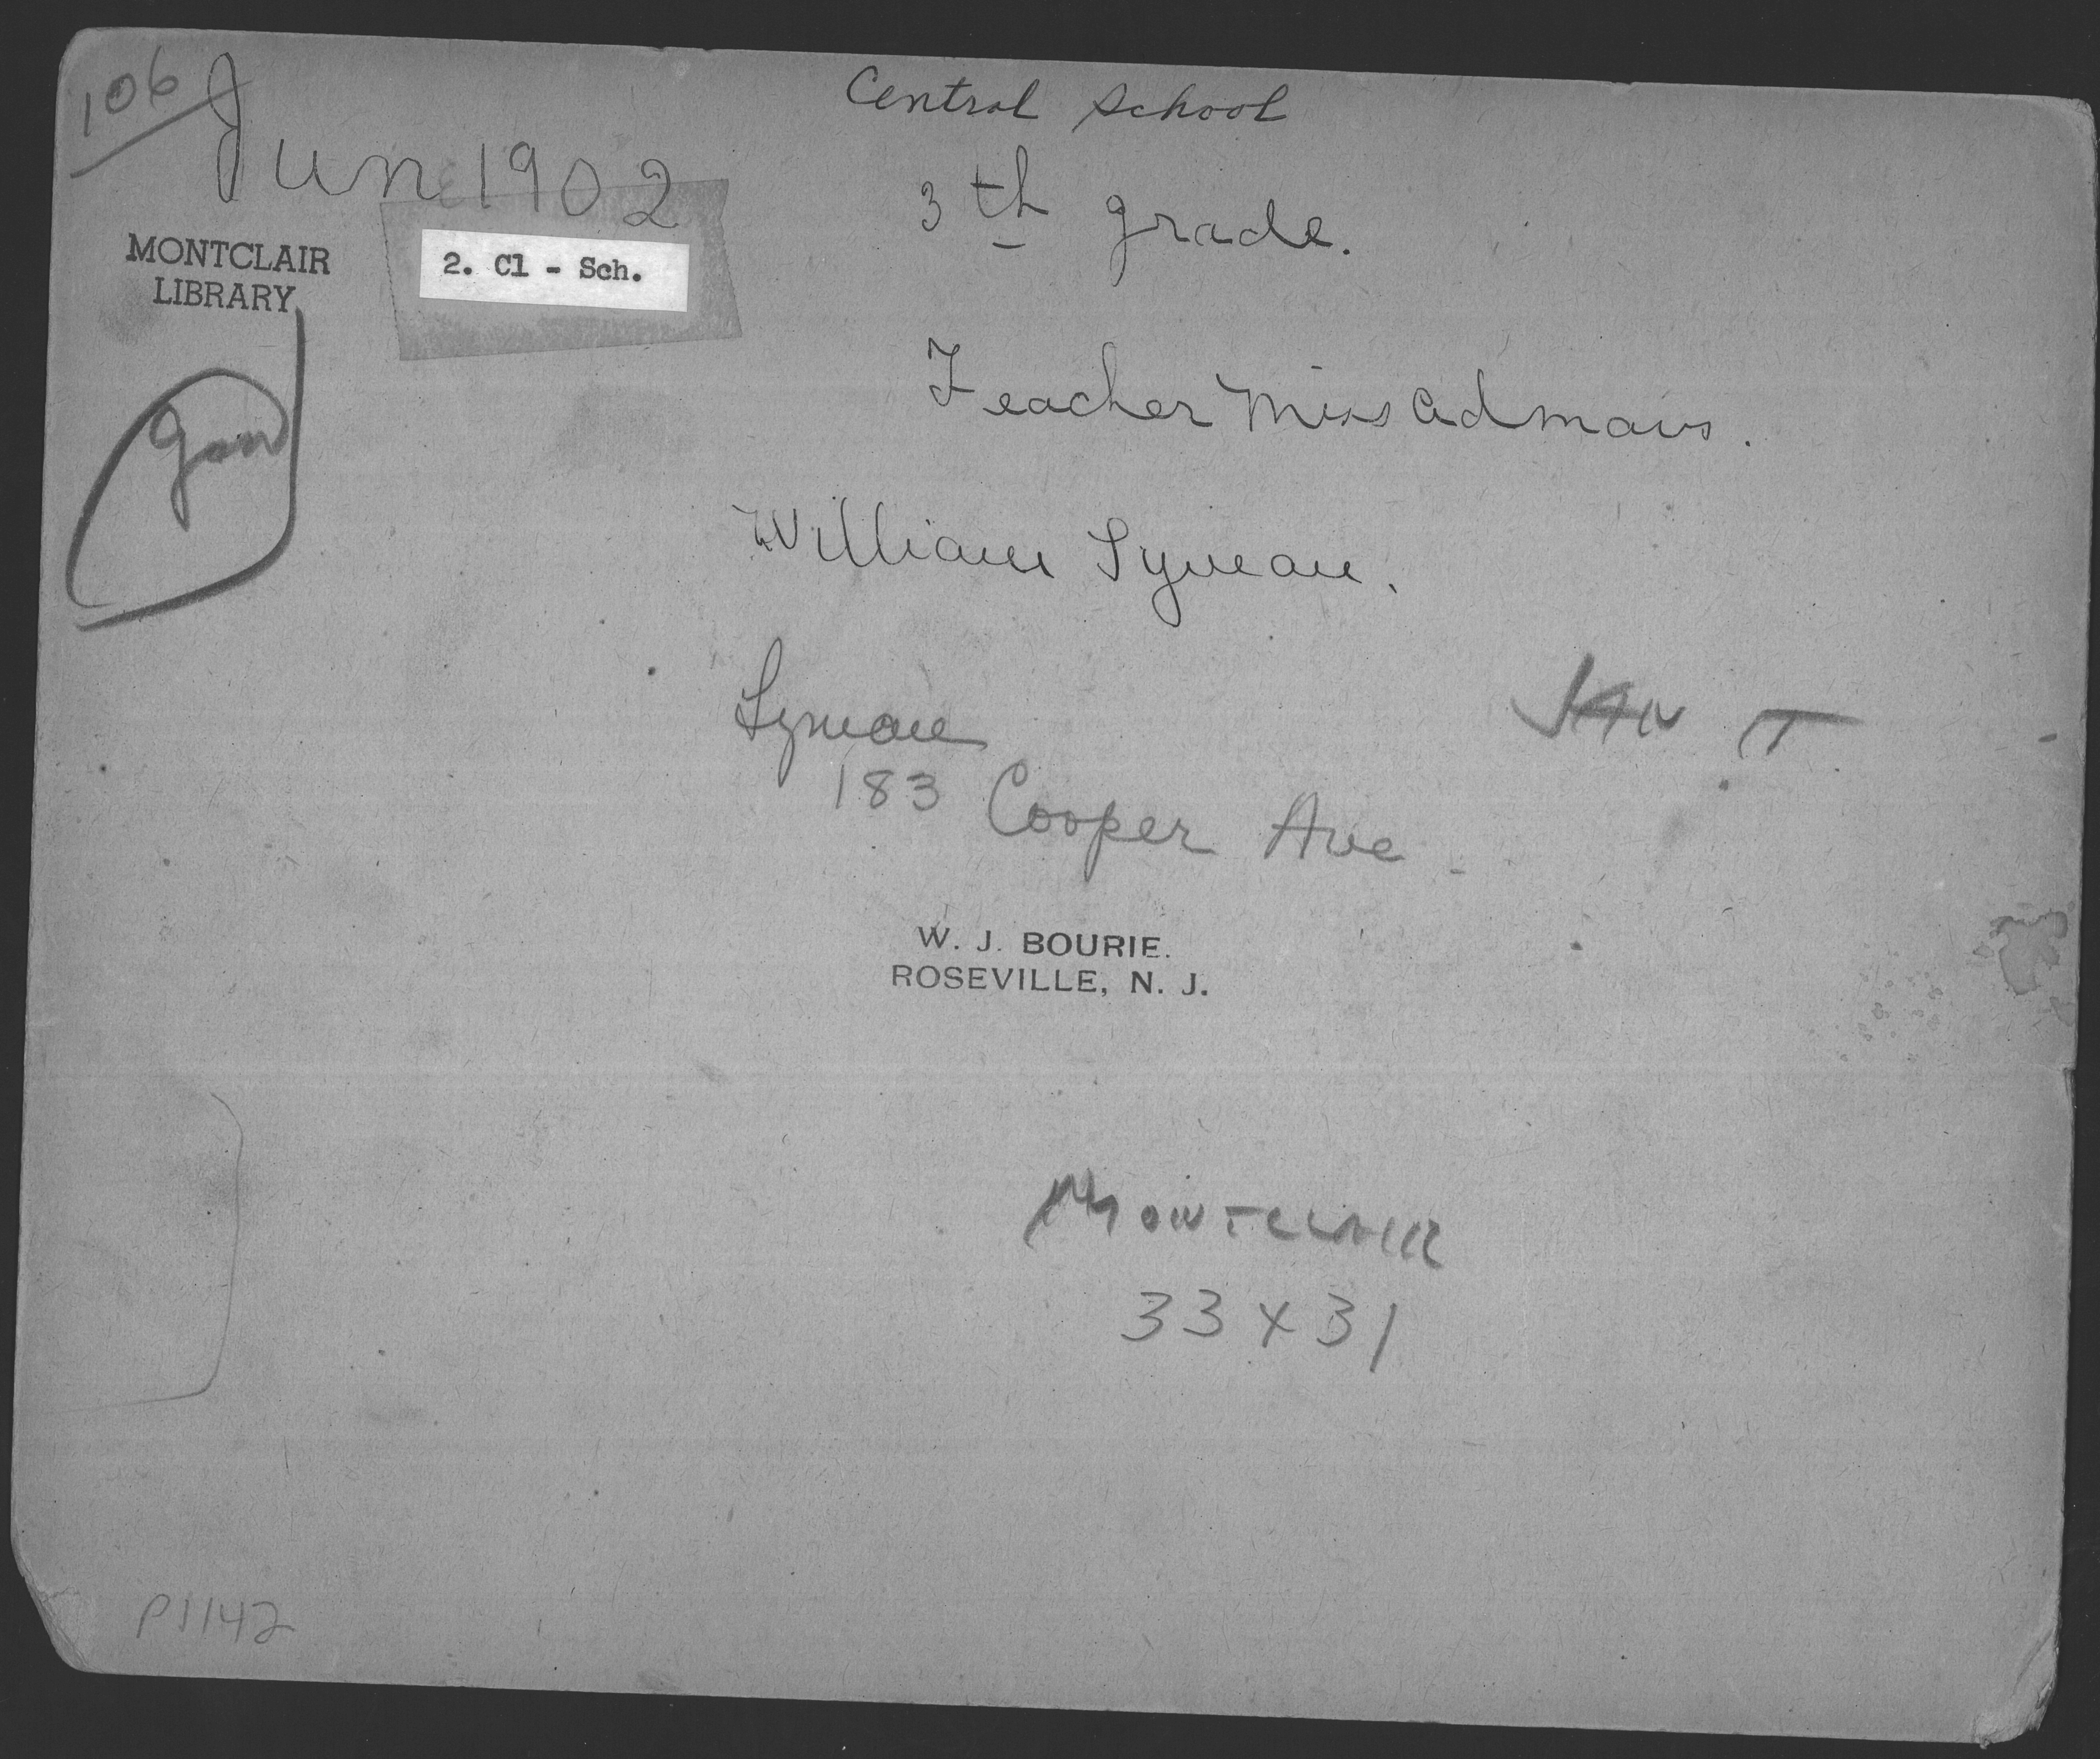 106
Central School
Jun 1902
3 th grade.
MONTCLAIR
LIBRARY
2. Cl - Sch.
Teacher Miss Admans.
William Lyman.
Lyman
JAN T
183 Cooper Ave
W. J. BOURIE.
ROSEVILLE, N. J.
MONTCLAIR
33 x 31
P1142